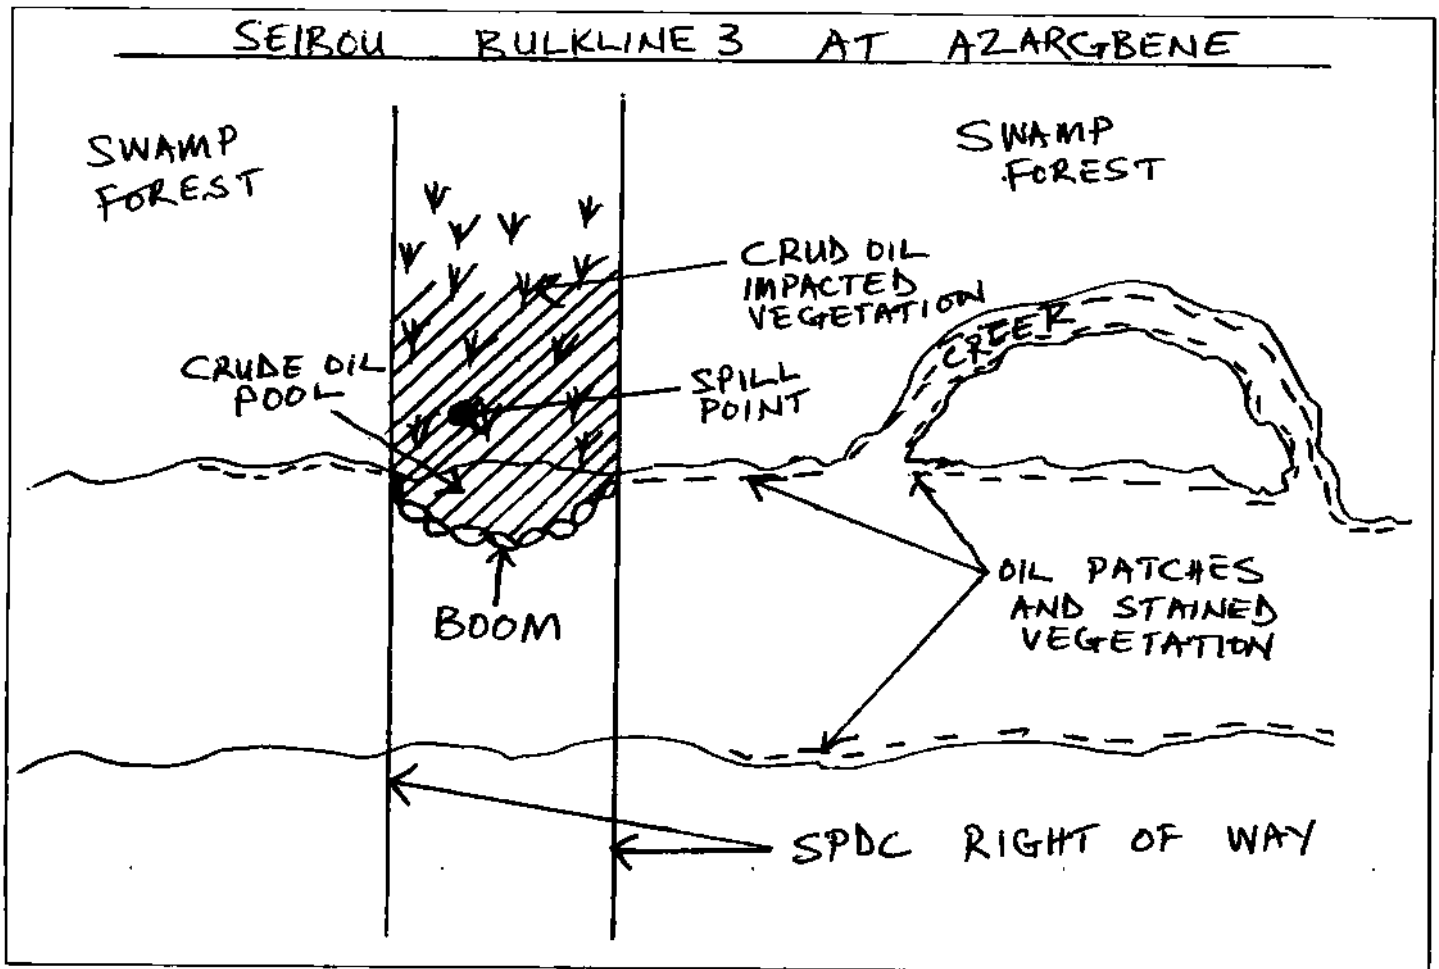 SEIBOU BULKLINE 3 AT AZARGBENE
SWAMP
FOREST
SWAMP
FOREST
CRUD OIL
IMPACTED
VEGETATION
CREEK
CRUDE OIL
POOL
SPILL
POINT
BOOM
OIL PATCHES
AND STAINED
VEGETATION
SPDC RIGHT OF WAY